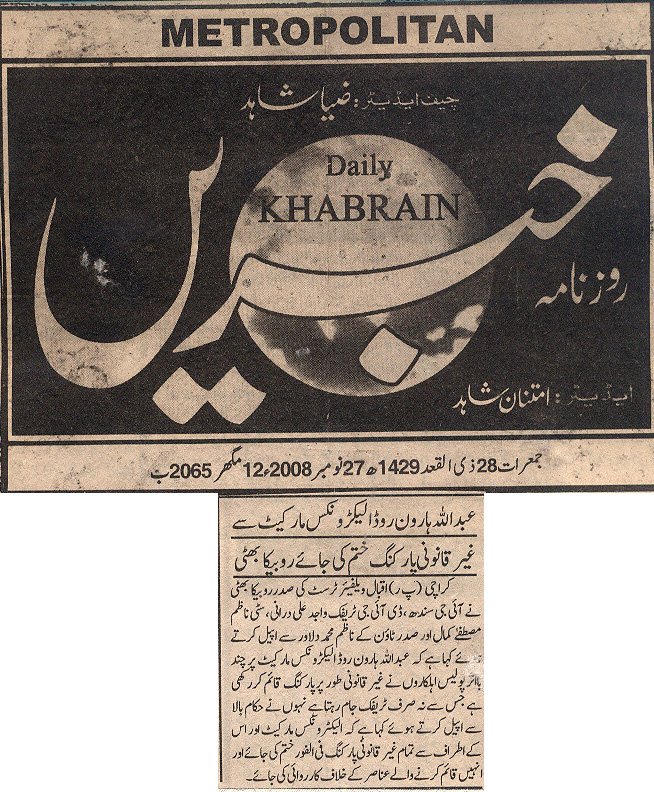 METROPOLITAN
چیف ایڈیٹر : ضیا شاہد
Daily
KHABRAIN
خبریں
روزنامہ
ایڈیٹر : امتنان شاہد
جمعرات 28 ذی القعد 1429ھ 27 نومبر 2008ء 12 مگھر 2065ب
عبداللہ ہارون روڈ الیکٹرونکس مارکیٹ سے
غیر قانونی پارکنگ ختم کی جائے روبیکا بھٹی
کراچی (پ ر) اقبال ویلفیئر ٹرسٹ کی صدر روبیکا بھٹی
نے آئی جی سندھ، ڈی آئی جی ٹریفک واجد علی درانی، سٹی ناظم
مصطفیٰ کمال اور صدر ٹاؤن کے ناظم محمد دلاور سے اپیل کرتے
ہوئے کہا ہے کہ عبداللہ ہارون روڈ الیکٹرونکس مارکیٹ پر چند
بااثر پولیس اہلکاروں نے غیر قانونی طور پر پارکنگ قائم کر رکھی
ہے جس سے نہ صرف ٹریفک جام رہتا ہے نہوں نے حکام بالا
سے اپیل کرتے ہوئے کہا ہے کہ الیکٹرونکس مارکیٹ اور اس
کے اطراف سے تمام غیر قانونی پارکنگ فی الفور ختم کی جائے اور
انہیں قائم کرنے والے عناصر کے خلاف کارروائی کی جائے۔